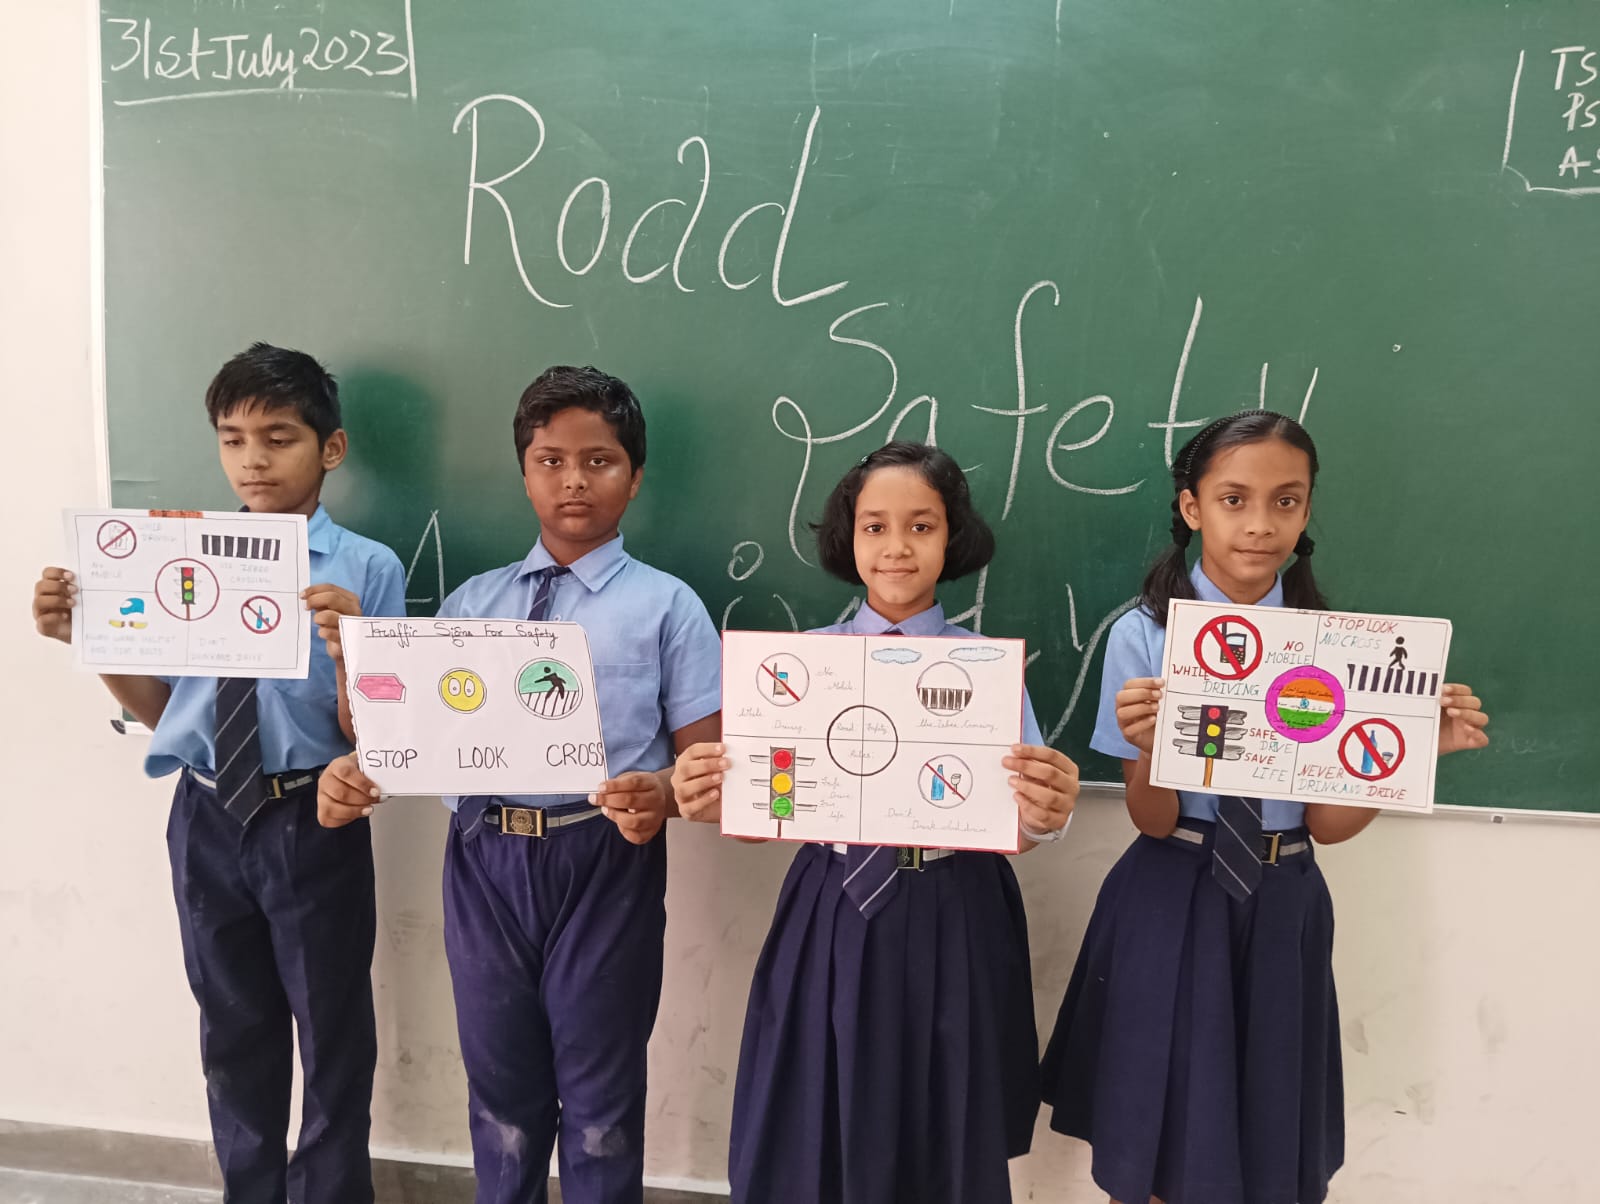 31st July 2023
Road
Safety
TS
PS
A-S
WHILE
DRIVING
NO
MOBILE
USE ZEBRA
CROSSING
ALWAYS WEAR HELMET
AND SEAT BELTS
DON'T
DRINK AND DRIVE
Traffic Signs For Safety
STOP LOOK CROSS
No
Mobile
While
Driving
Road Safety
Rules
Safe
Drive
Save
Life
Don't
Drink and drive
NO
MOBILE
WHILE
DRIVING
STOP LOOK
AND CROSS
SAFE
DRIVE
SAVE
LIFE
NEVER
DRINK AND DRIVE